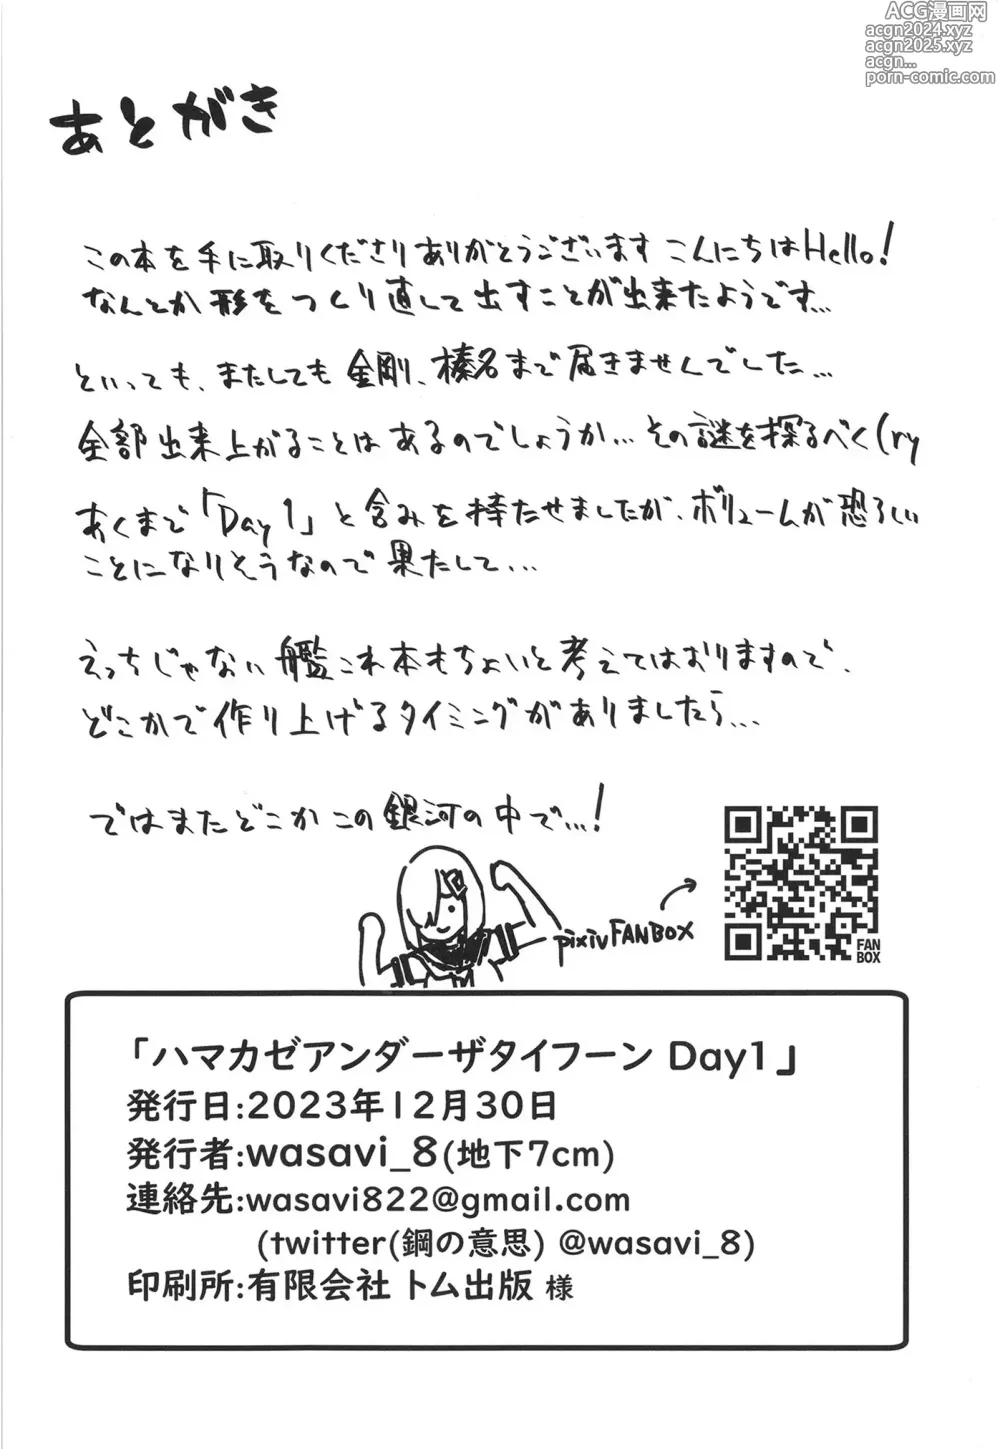 ACG漫画网
acgn2024.xyz
acgn2025.xyz
acgn...
porn-comic.com
あとがき
この本を手に取りくださりありがとうございます こんにちはHello!
なんとか形をつくり直して出すことが出来たようです…
といっても、またしても金剛、榛名まで届きませんでした…
全部出来上がることはあるのでしょうか…その謎を探るべく(ry
あくまで「Day1」と含みを持たせましたが、ボリュームが恐ろしい
ことになりそうなので果たして…
えっちじゃない艦これ本もちょいと考えてはおりますので、
どこかで作り上げるタイミングがありましたら…
ではまたどこかこの銀河の中で…!
pixivFANBOX
FAN
BOX
「ハマカゼアンダーザタイフーン Day1」
発行日:2023年12月30日
発行者:wasavi_8(地下7cm)
連絡先:wasavi822@gmail.com
(twitter(鋼の意思) @wasavi_8)
印刷所:有限会社 トム出版 様